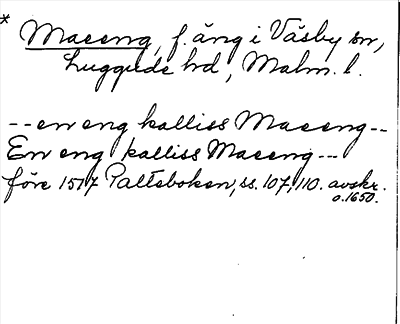 *
Maeeng, f. äng i Väsby sn,
Luggude hd, Malm. l.
-- en eng kalliss Maeeng --
En eng kalliss Maeeng ---
före 1517 Palteboken, ss. 107, 110. avskr.
o. 1650.